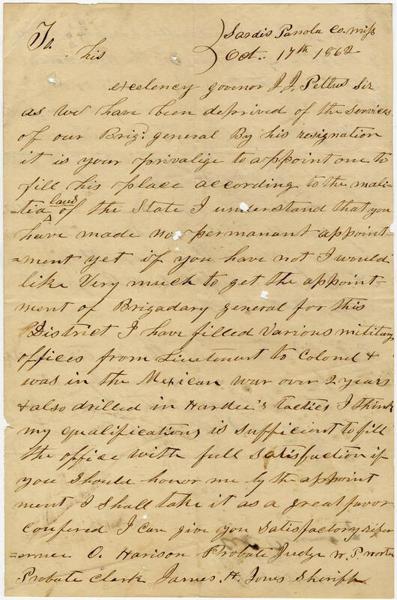 Sardis Panola Co. Miss
Oct. 17th 1862
To his
excelency govenor J. J. Pettus Sir
as we have been deprived of the services
of our Brig. general By his resignation
it is your privalige to appoint one to
fill his place according to the mali-
-tia laws of the State I understand that you
have made no permanant appoint-
-ment yet if you have not I would
like Very much to get the appoint-
ment of Brigadary general for this
District I have filled Various military
offices from Lieutenant to Colonel &
was in the Mexican war over 2 years
& also drilled in Hardee's tactics I think
my qualifications is sufficient to fill
the office with full Satisfaction if
you Should honor me by the appoint
ment, I shall take it as a great favor
confered I can give you Satisfactory refer
=ence O. Harison Probate Judge W. P.
Probate Clark James H. Jones Sheriff